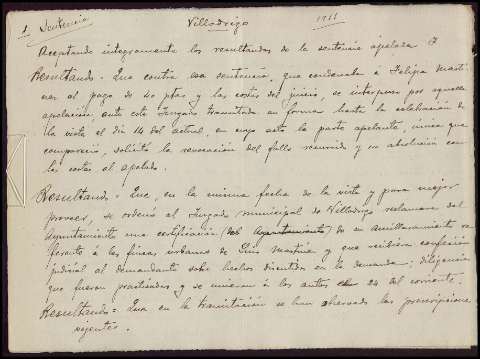 1. Sentencia
Villodrigo
1911
Aceptando íntegramente los resultandos de la sentencia apelada y
Resultando = Que contra esa sentencia, que condenaba á Felipa Martí-
nez al pago de 40 ptas y las costas del juicio, se interpuso por aquella
apelación, ante este Juzgado tramitada en forma hasta la celebración de
la vista el día 14 del actual, en cuyo acto la parte apelante, única que
compareció, solicitó la revocación del fallo recurrido y su absolución con
las costas al apelado.
Resultando = Que, en la misma fecha de la vista y para mejor
proveer, se ordenó al Juzgado municipal de Villodrigo reclamara del
Ayuntamiento una certificación (del Ayuntamiento) de su amillaramiento re-
ferente á las fincas urbanas de Luis Martínez y que recibiera confesión
judicial al demandante sobre hechos discutidos en la demanda; diligencias
que fueron practicadas y se unieron á los autos el 24 del corriente.
Resultando = Que en la tramitación se han observado las prescripciones
vigentes.